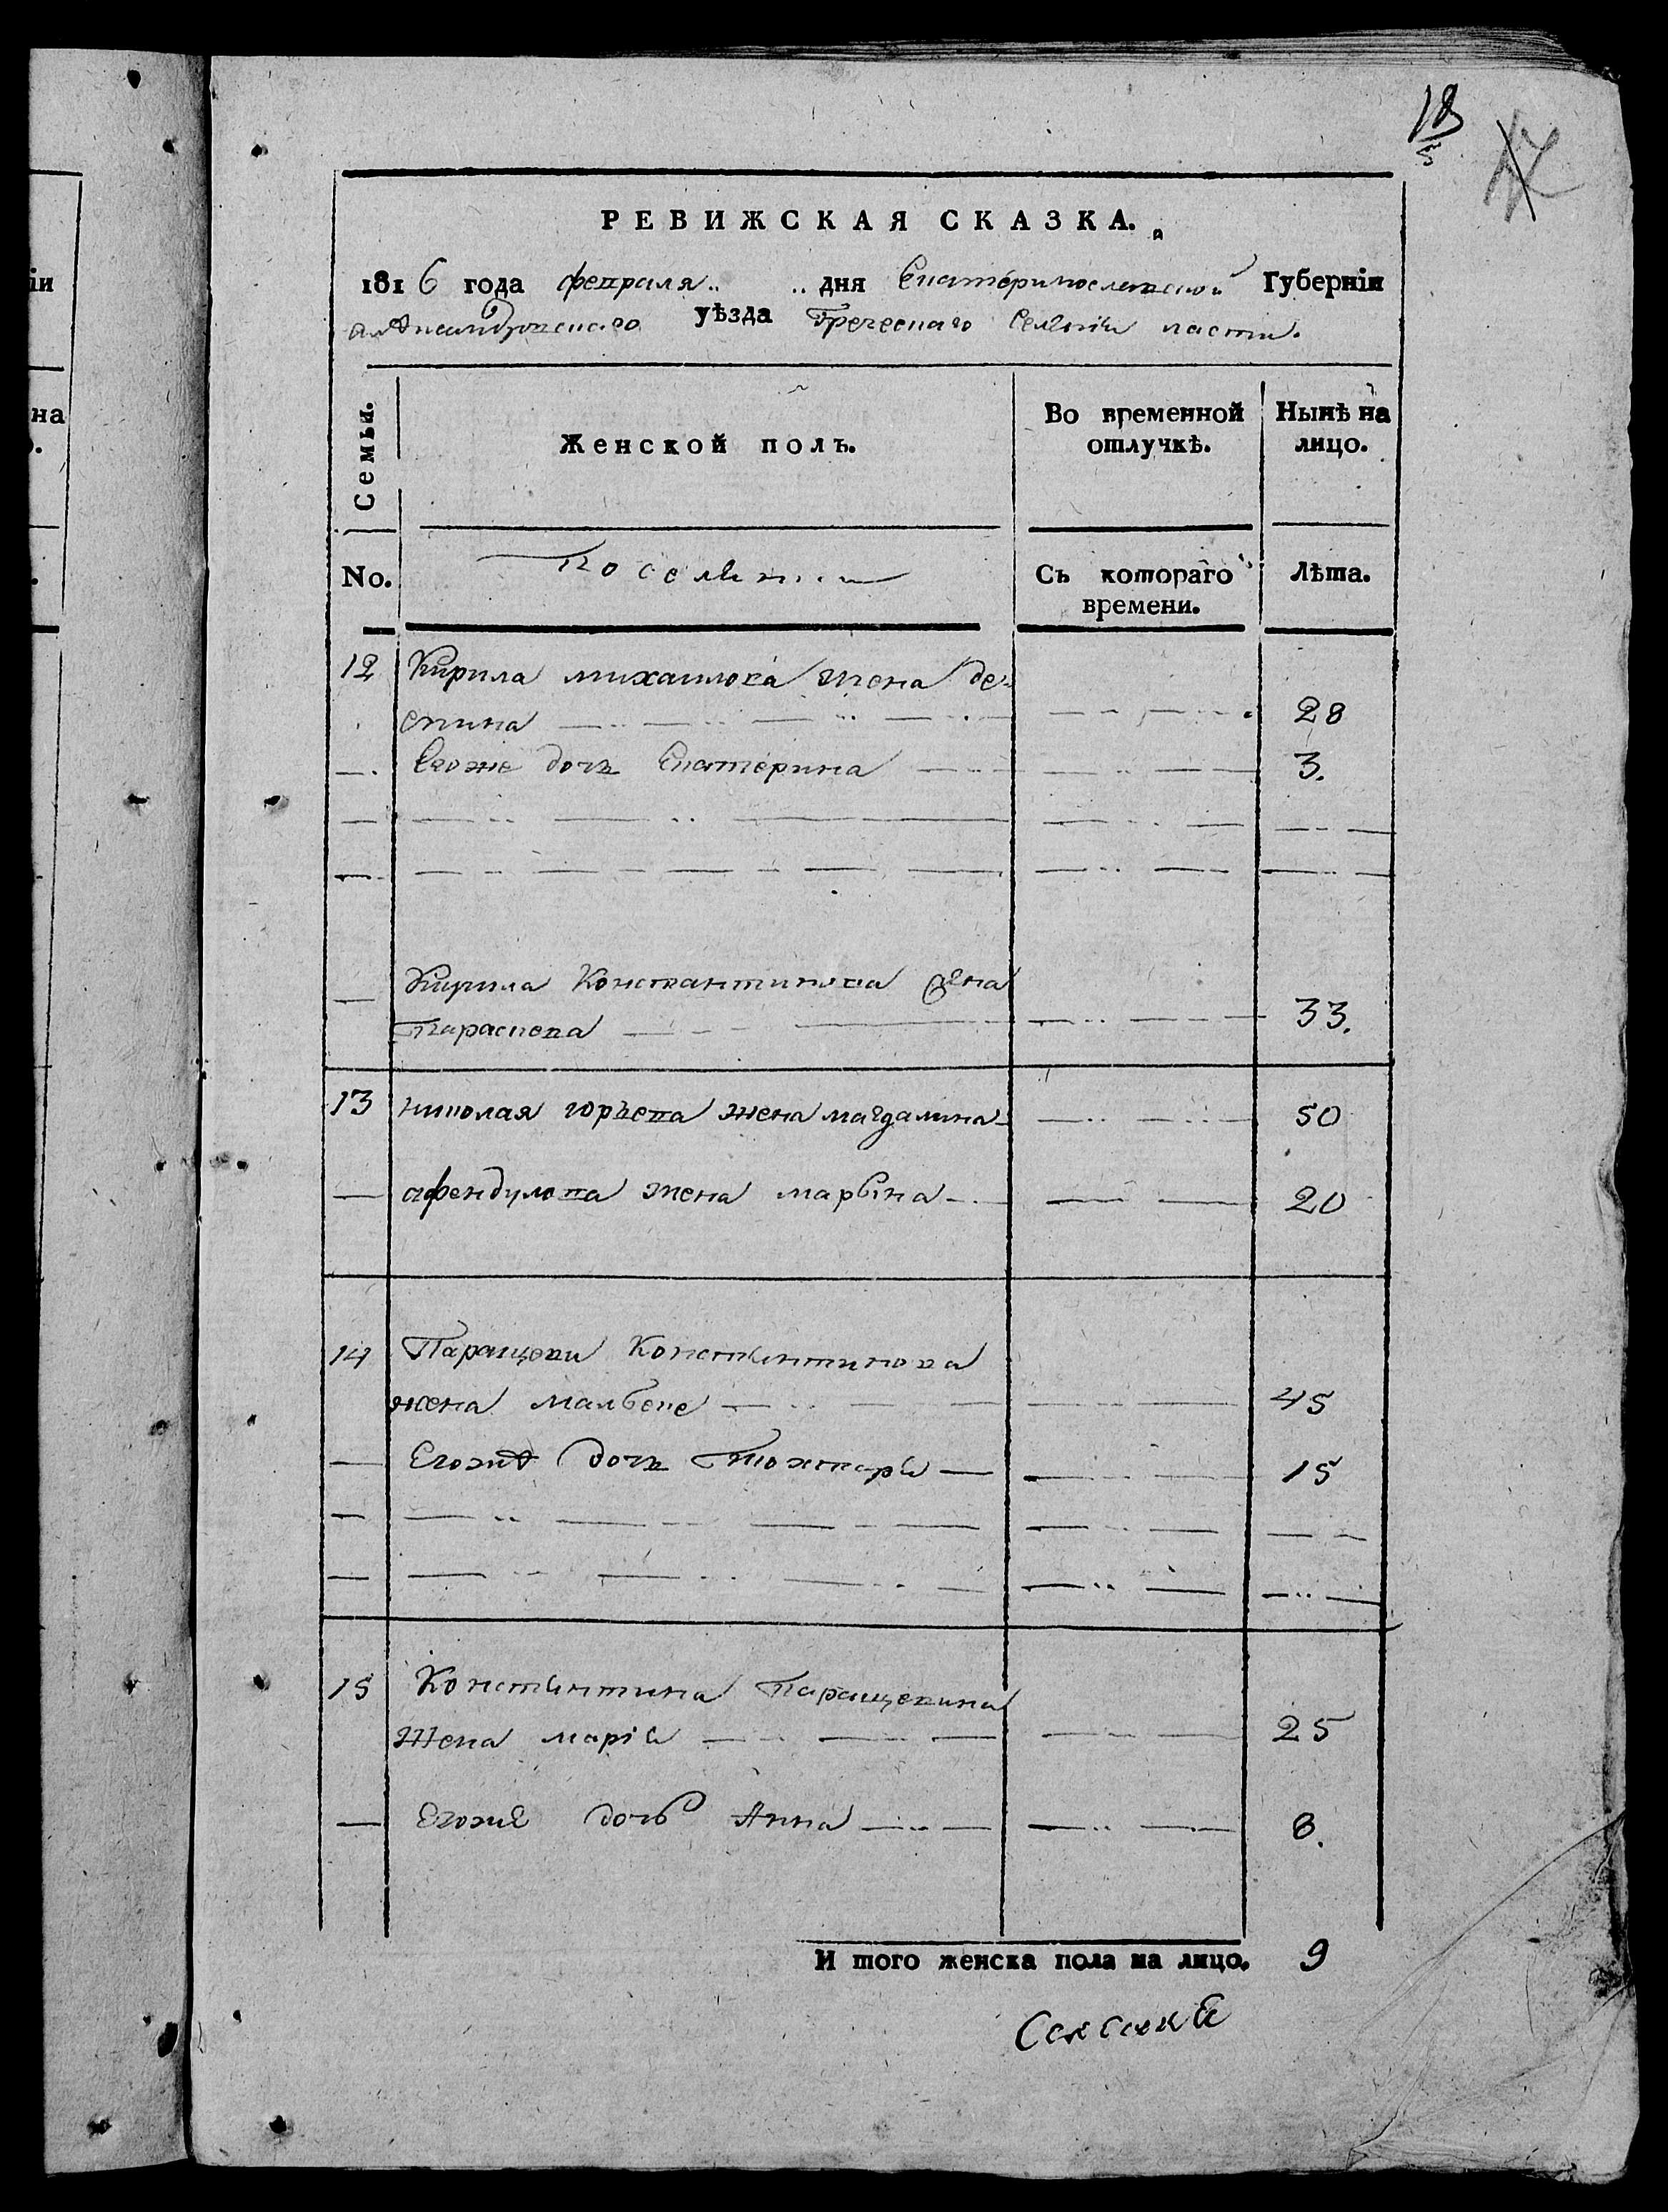 18
17
РЕВИЖСКАЯ СКАЗКА.
1816 года февраля дня Екатеринославской Губерніи
александровскаго уѣзда Греческаго Селенія ласпи.
Семьи.
Женской полъ.
Во временной отлучкѣ.
Нынѣ на лицо.
No.
Поселяни
Съ котораго времени.
Лѣта.
12 Кирила михаилова жена де-
спина 28
Егоже дочь Екатерина 3.
Кирила Константинова жена
Параскева 33.
13 николая юрьева жена магдалина 50
афендулова жена марына 20
14 Паращеви Константинова
жена малбеке 45
Егоже дочь 15
15 Константина Паращевина
жена марія 25
Егоже дочь Анна 8.
И того женска пола на лицо. 9